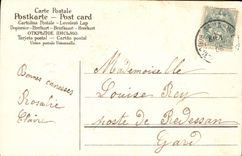 Carte Postale
Postkarte - Post card
Cartolina Postale - Levelező Lap
Dopisnice - Brefkort - Briefkaart - Brevkort
ОТКРЫТОЕ ПИСЬМО
Tarjeta postal - Cartão postal
Union postale Universelle
Bonnes caresses
Rosalie
Claire
Mademoiselle
Louise Rey
poste de Redessan
Gard